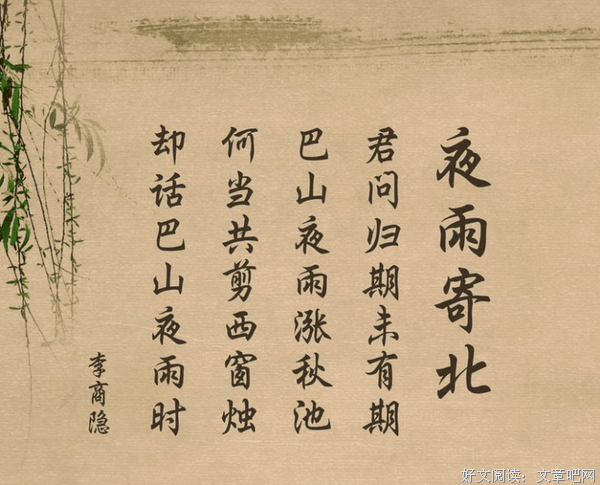 夜雨寄北
君问归期未有期
巴山夜雨涨秋池
何当共剪西窗烛
却话巴山夜雨时
李商隐
好文阅读：文章吧网